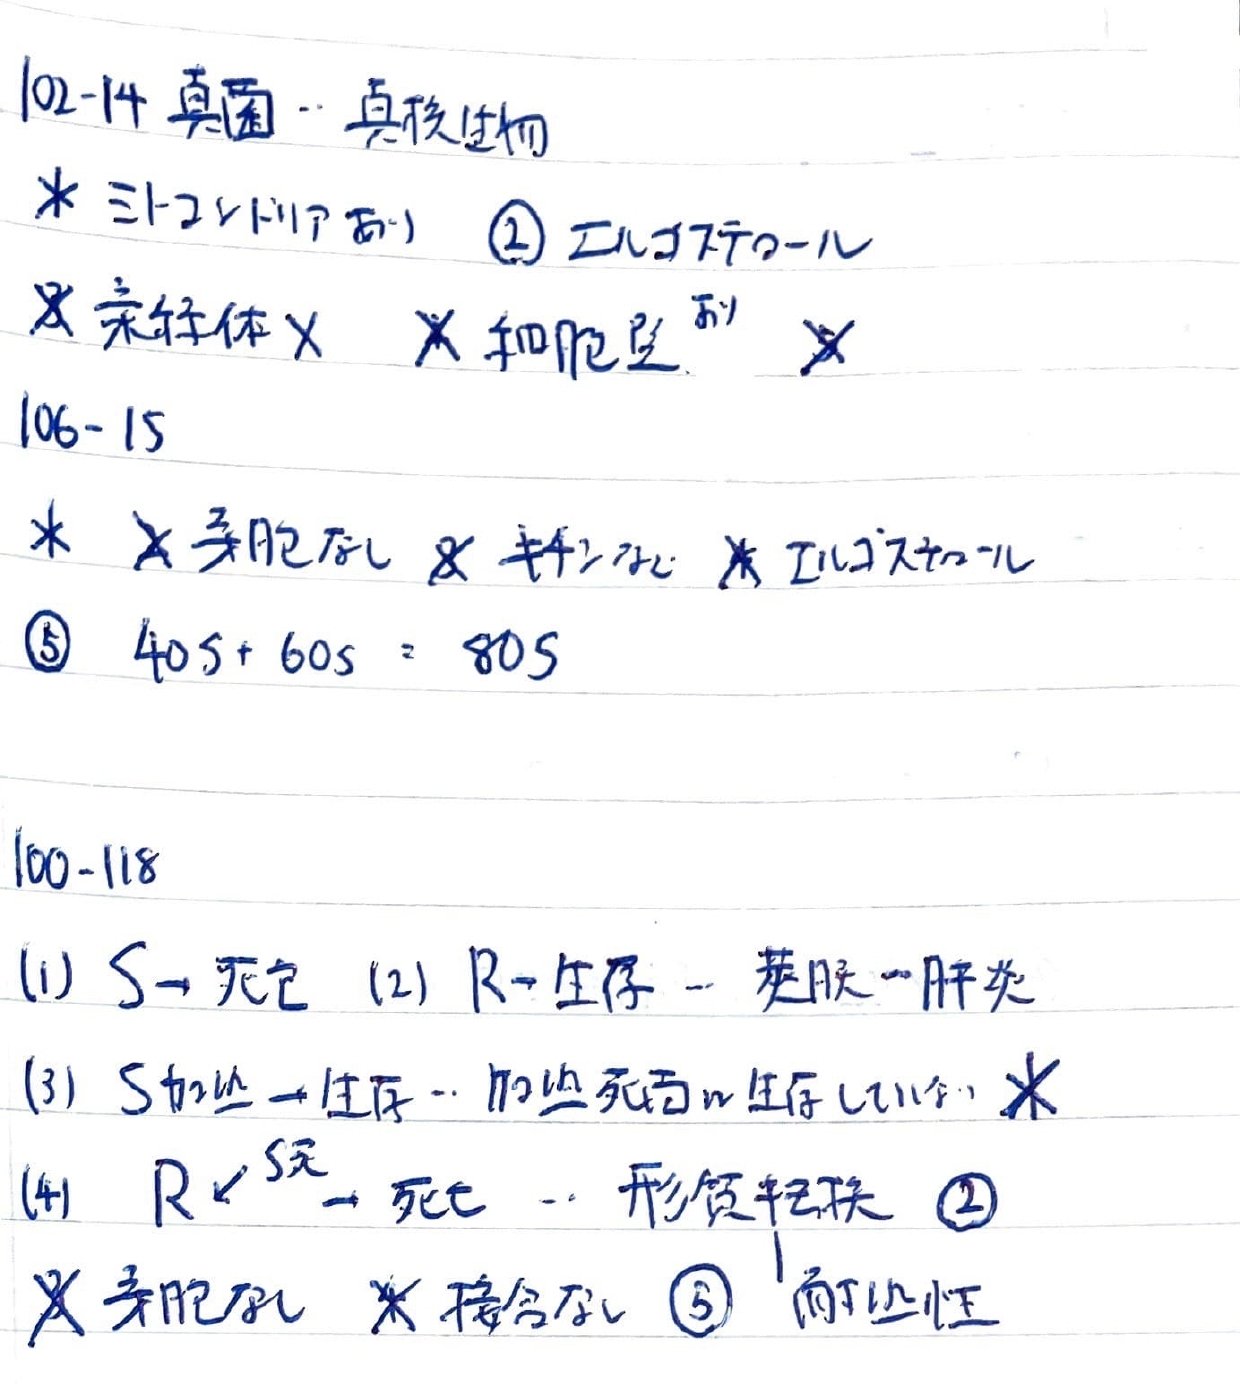 102-14 真菌 ‥ 真核生物
ミトコンドリアあり ② エルゴステロール
葉緑体X 細胞壁あり
106-15
芽胞なし キチンなし エルゴステロール
⑤ 40S+ 60S = 80S
100-118
(1) S→死亡 (2) R→生存 ‥ 莢膜‥肝炎
(3) S加熱→生存‥ 加熱死菌は生存していない
(4) R↙S死→死亡 ‥ 形質転換 ②
芽胞なし 接合なし ⑤ 耐熱性